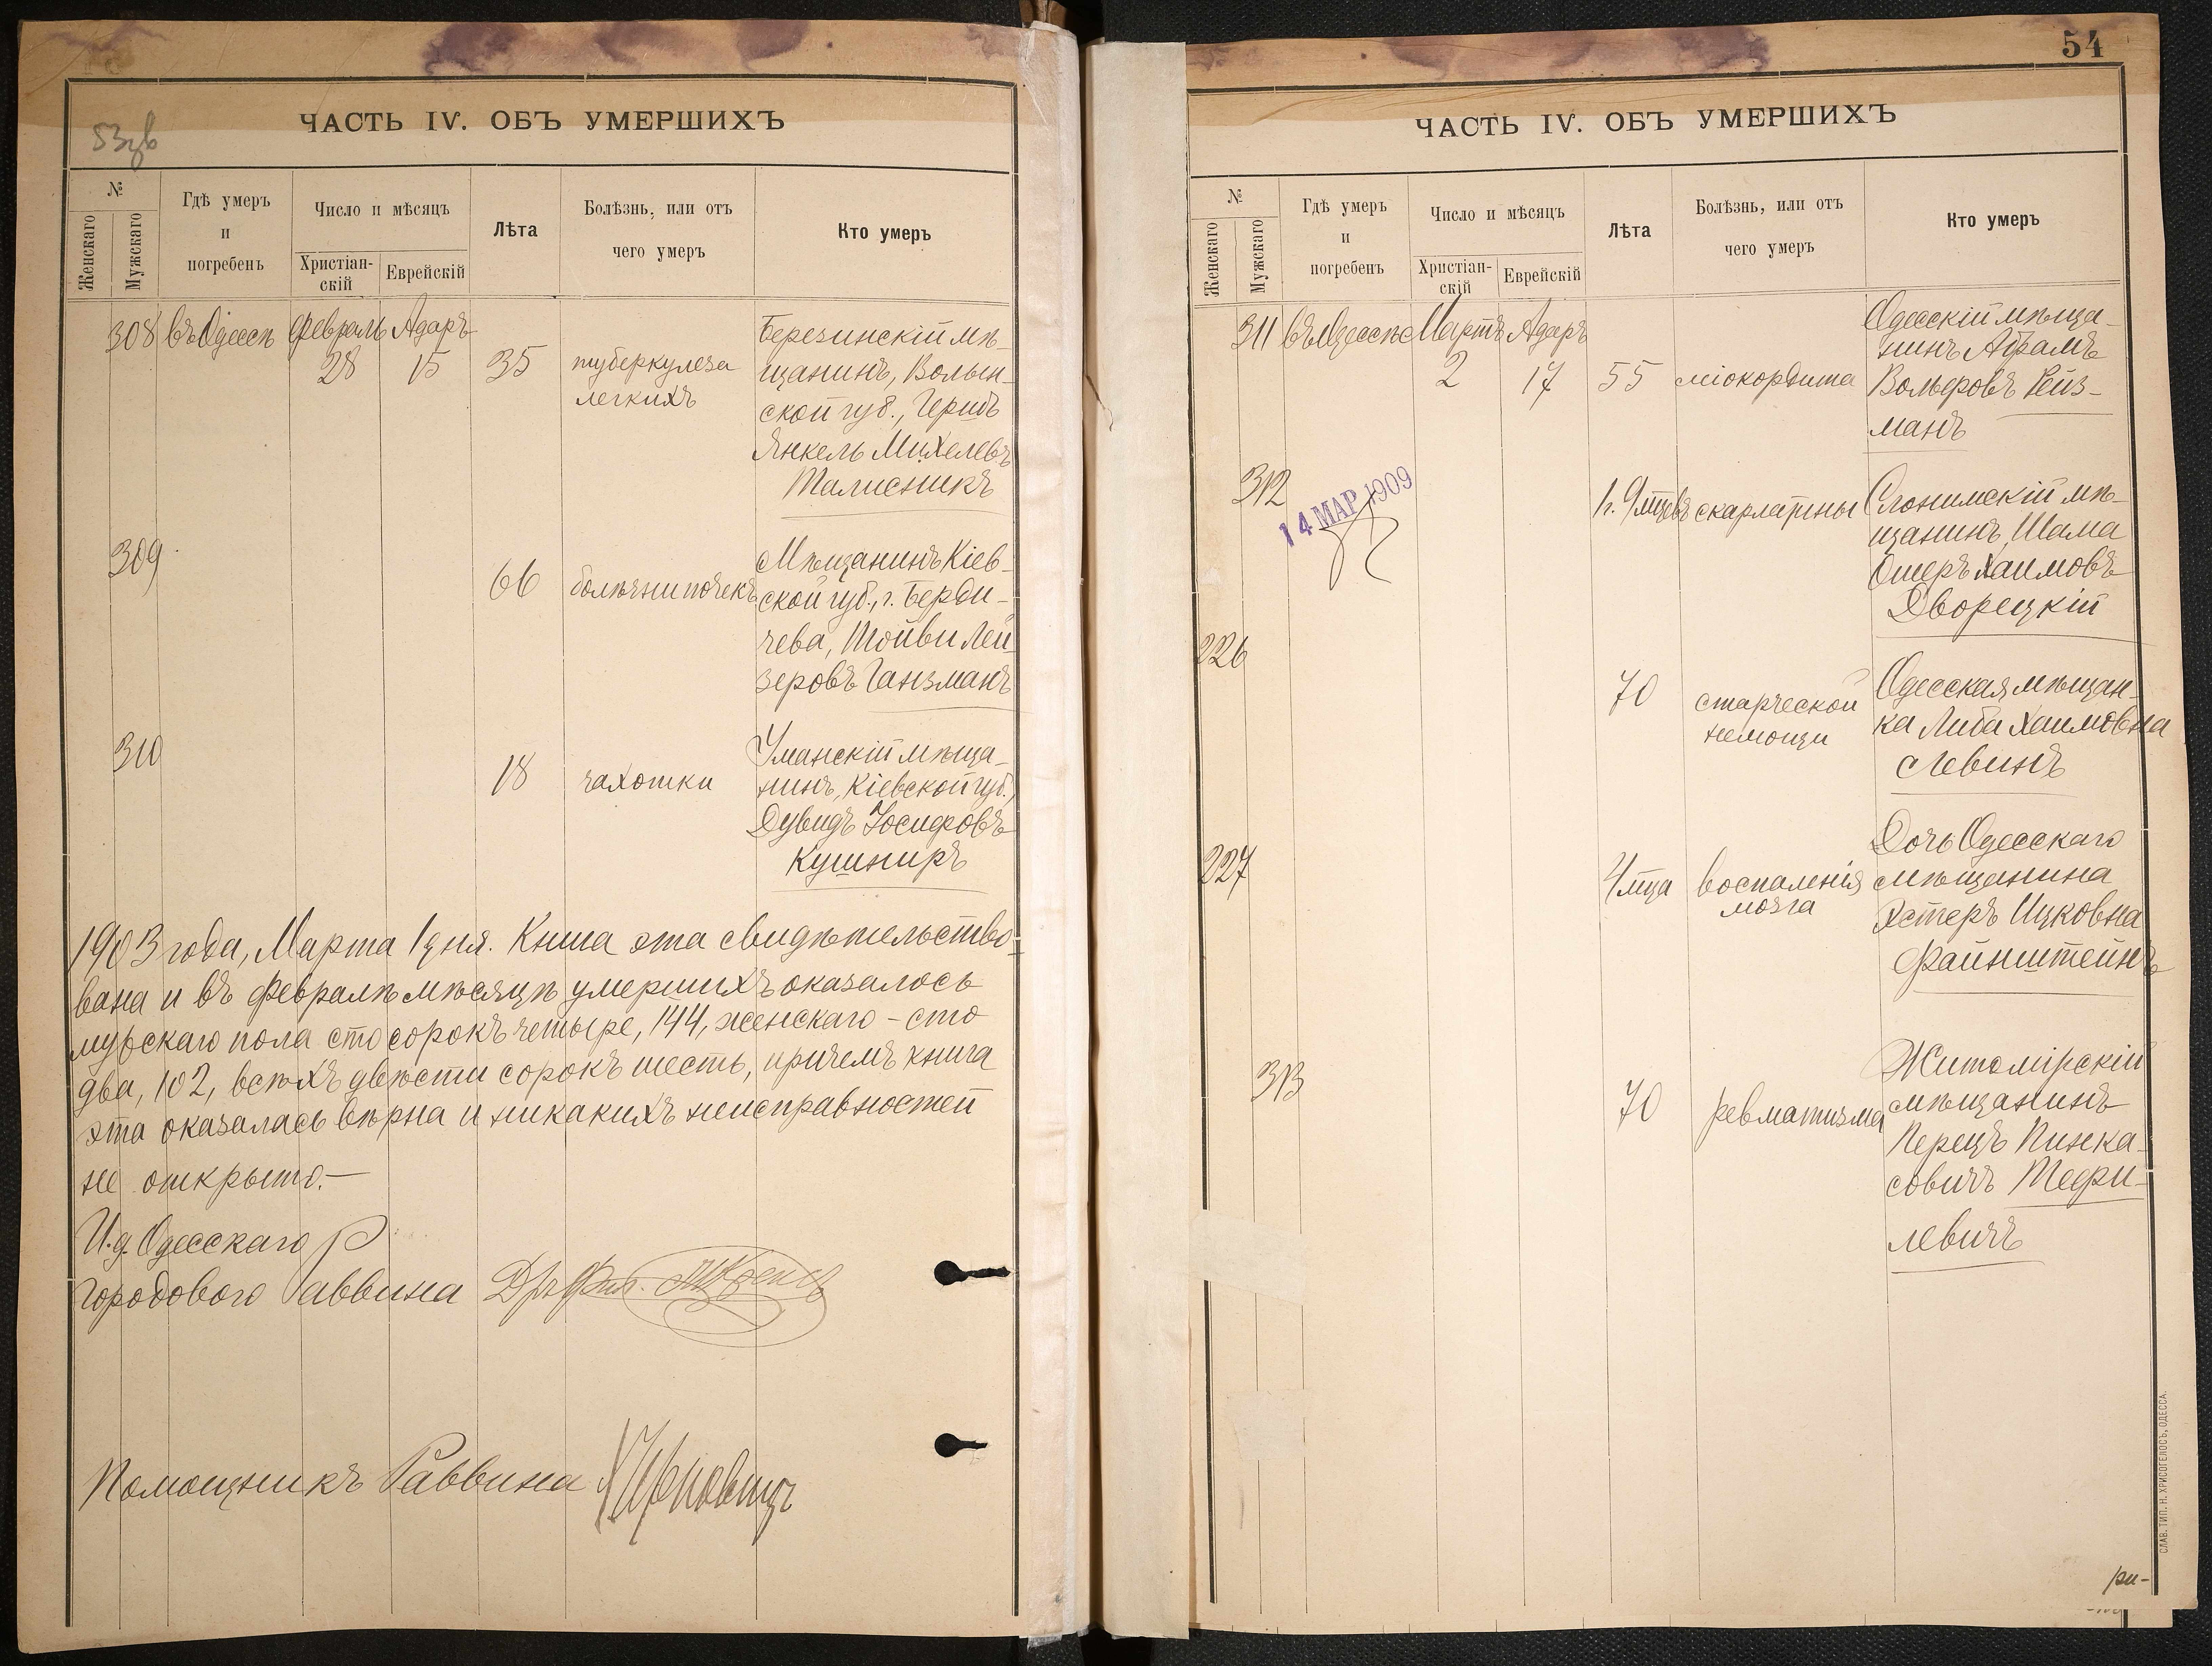 53 зв
ЧАСТЬ IV. ОБЪ УМЕРШИХЪ
№
Женскаго
Мужскаго
Гдѣ умеръ
и
погребенъ
Число и мѣсяцъ
Христіан-
скій
Еврейскій
Лѣта
Болѣзнь, или отъ
чего умеръ
Кто умеръ
308 въ Одессѣ Февраль Адаръ
28 15 35
туберкулеза
легкихъ
Березинскій мѣ-
щанинъ, Волын-
ской губ., Гершъ
Янкель Михелевъ
Талисникъ
309
66 болѣзни почекъ
Мѣщанинъ Кіев-
ской губ., г. Берди-
чева, Тойви Лей-
зеровъ Ганзманъ
310
18 чахотки
Уманскій мѣща-
нинъ, Кіевской губ.,
Дувидъ Іосифовъ
Кушниръ
1903 года, Марта 1 дня. Книга эта свидѣтельство-
вана и въ Февралѣ мѣсяцѣ умершихъ оказалось
мужскаго пола сто сорокъ четыре, 144, женскаго - сто
два, 102, всѣхъ двѣсти сорокъ шесть, причемъ книга
эта оказалась вѣрна и никакихъ неисправностей
не открыто.—
И.д. Одесскаго
Городового Раввина
Помощникъ Раввина
54
ЧАСТЬ IV. ОБЪ УМЕРШИХЪ
№
Женскаго
Мужскаго
Гдѣ умеръ
и
погребенъ
Число и мѣсяцъ
Христіан-
скій
Еврейскій
Лѣта
Болѣзнь, или отъ
чего умеръ
Кто умеръ
311 въ Одессѣ Мартъ Адаръ
2 17 55 міокордита
Одесскій мѣща-
нинъ Абрамъ
Вольфовъ Рейз-
манъ
312
14 МАР 1909
1 г. 9 мцевъ скарлатины
Слонимскій мѣ-
щанинъ, Шама
Ошеръ Хаимовъ
Дворецкій
226
70 старческой
немощи
Одесская мѣщан-
ка Либа Хаимовна
Левинъ
227
4 мца воспаленія
мозга
Дочь Одесскаго
мѣщанина
Эстеръ Ицковна
Файнштейнъ
313
70 ревматизма
Житомірскій
мѣщанинъ
Перецъ Пинха-
совичъ Тефи-
левичъ
СЛАВ. ТИП. Н. ХРИСОГЕЛОСЪ, ОДЕССА.